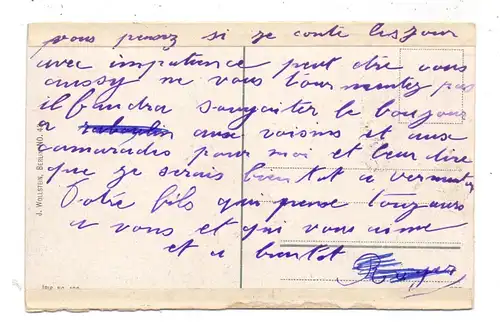 vous pensez si je conte les jour
avec impatiance peut etre vous
aussy ne vous tourmentez pas
il faudra souhaiter le bonjour
a aux voisins et aux
camarades pour moi et leur dire
que je serais bientot a
Votre fils qui pense toujours
a vous et qui vous aime
et a bientot
J. WOLLSTEIN, BERLIN NO. 43